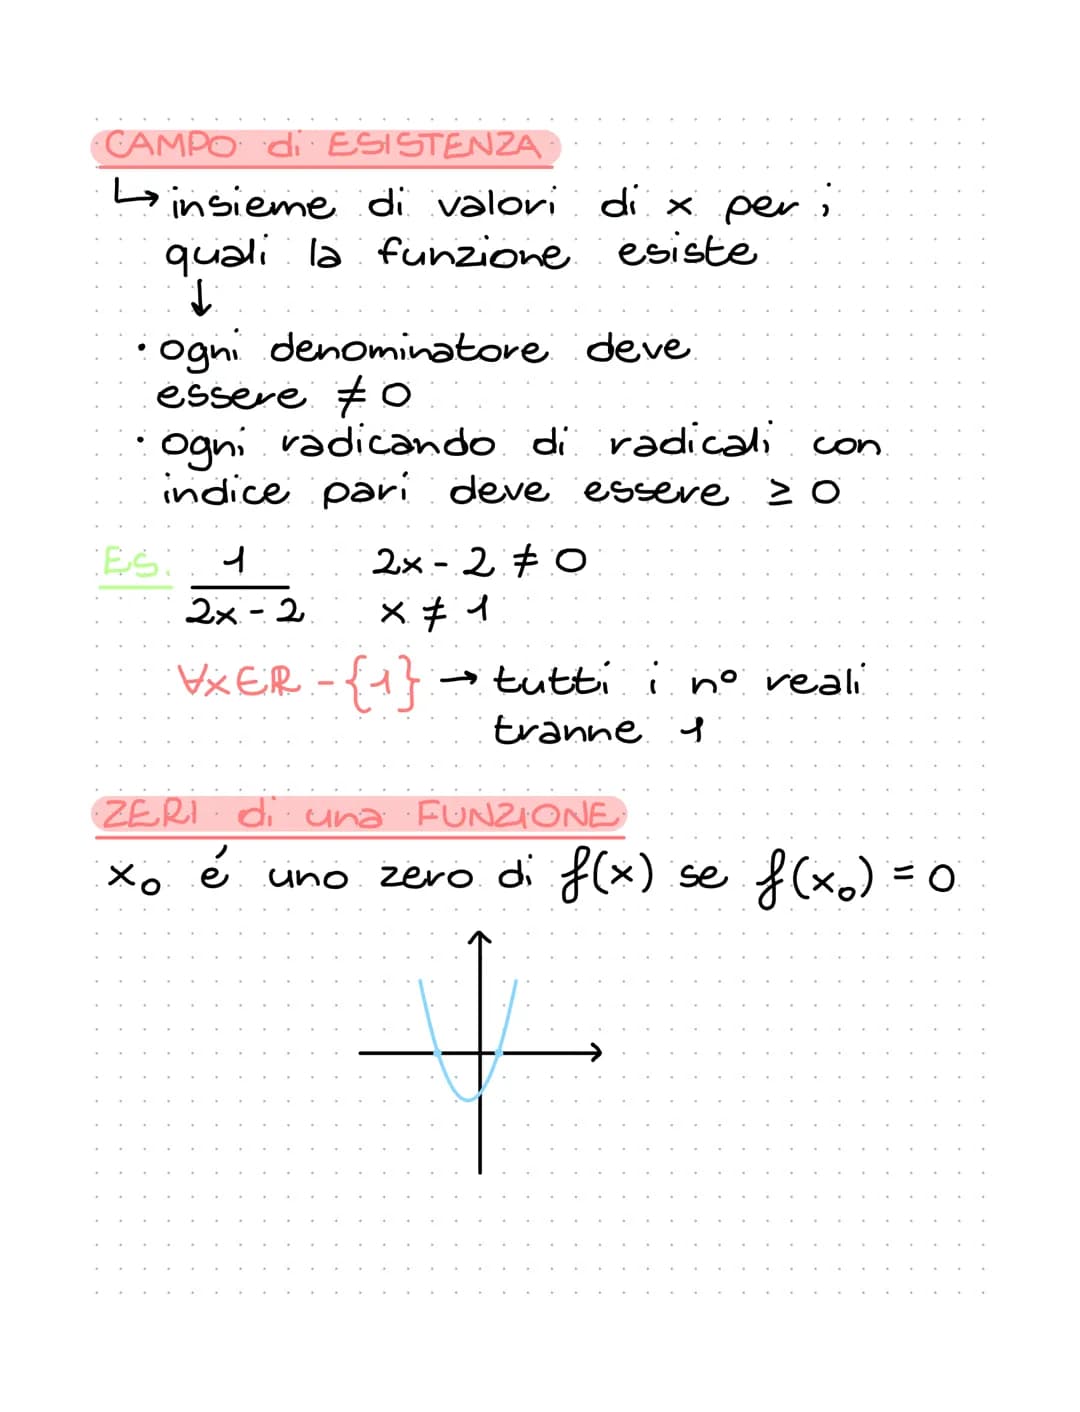 CAMPO di ESISTENZA
↳ insieme di valori di x per i
quali la funzione esiste
↓
· ogni denominatore deve
essere ≠ 0
· ogni radicando di radicali con
indice pari deve essere ≥ 0
Es. 1/(2x - 2) 2x - 2 ≠ 0
x ≠ 1
∀x∈R - {1} → tutti i n° reali
tranne 1
ZERI di una FUNZIONE
x₀ é uno zero di f(x) se f(x₀) = 0